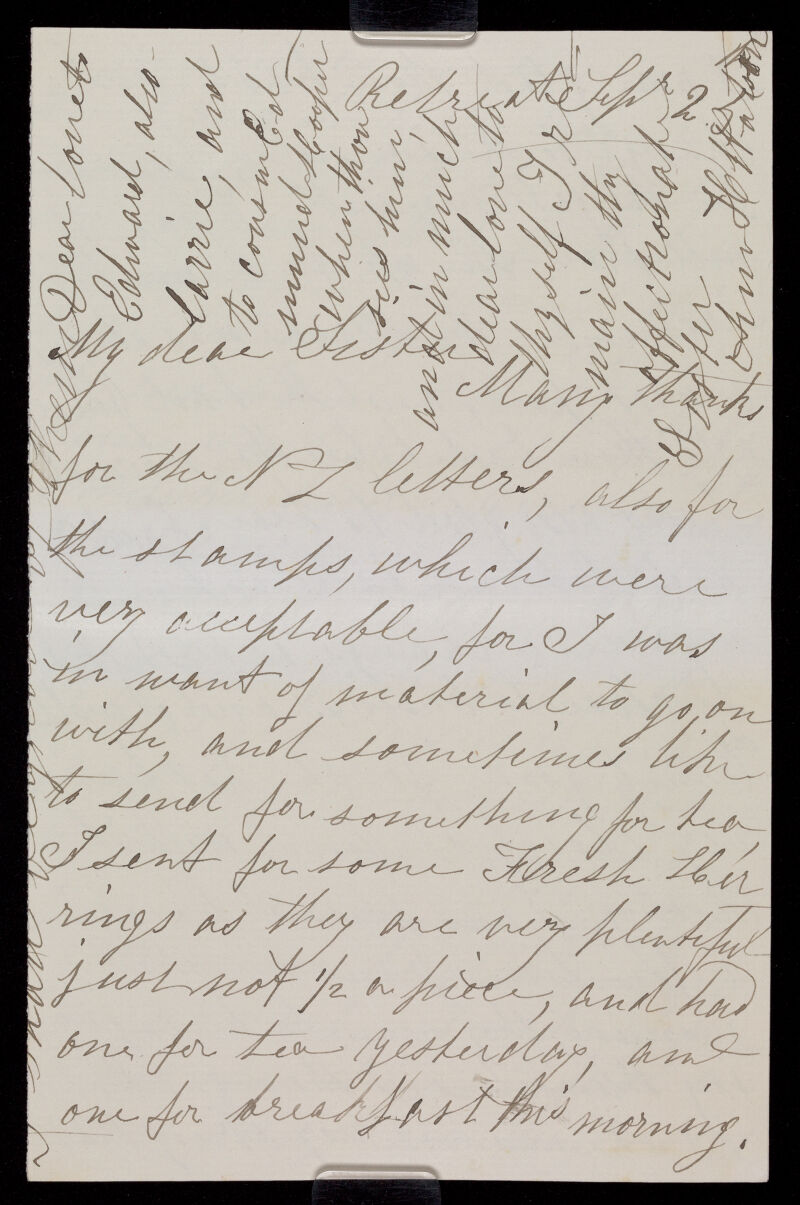 Retreat Sepr 2
My dear Sister
Many thanks
for the N Z letters, also for
the stamps, which were
very acceptable, for I was
in want of material to go on
with, and sometimes like
to send for something for tea,
I sent for some Fresh Her
rings as they are very plentiful
just not 1/2 a piece, and had
one for tea yesterday, and
one for breakfast this morning.
Dear love to
Edward, also
Carrie, and
to
mund Cooper
when thou
sees him,
and in much
dear love to
thyself I re
main thy
affectionate
Sister